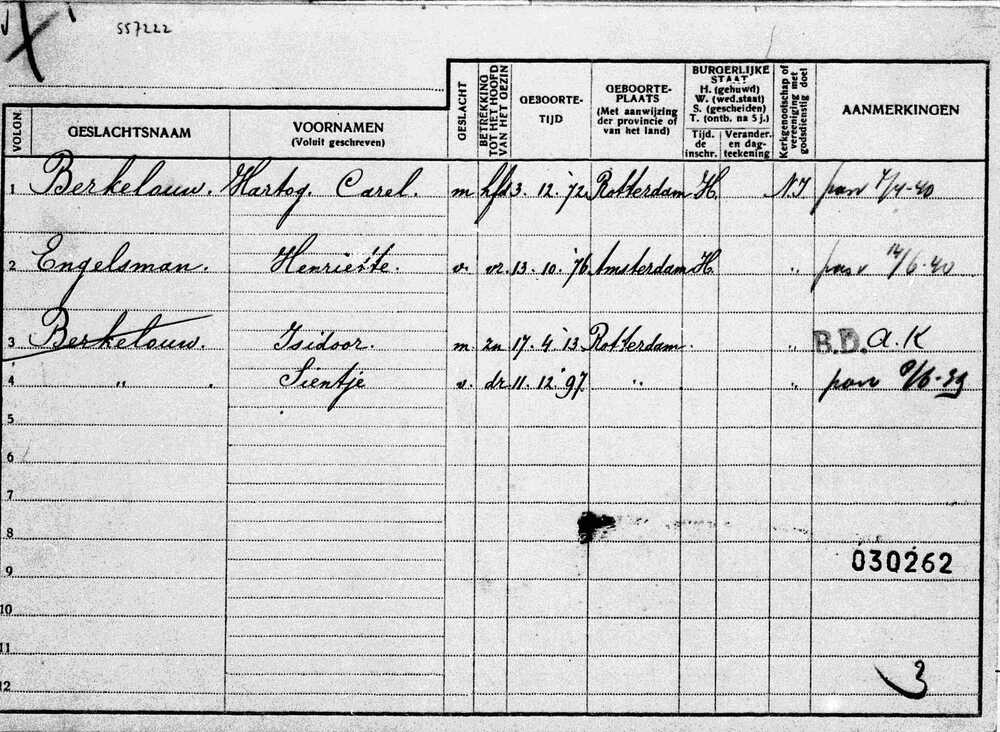 557222
VOLGN.
GESLACHTSNAAM
VOORNAMEN
(Voluit geschreven)
GESLACHT
BETREKKING TOT HET HOOFD VAN HET GEZIN
GEBOORTE-
TIJD
GEBOORTE-
PLAATS
(Met aanwijzing
der provincie of
van het land)
BURGERLIJKE
STAAT
H. (gehuwd)
W. (wed.staat)
S. (gescheiden)
T. (ontb. na 5 j.)
Tijd.
de
inschr.
Verander.
en dag-
teekening
Kerkgenootschap of
vereeniging met
godsdienstig doel
AANMERKINGEN
1 Berkelouw. Hartog. Carel. m hfd 3. 12. '72 Rotterdam H. N.I 7/4-40
2 Engelsman. Henriëtte. v. vr. 13. 10. '76 Amsterdam H. " 14/6-40
3 Berkelouw. Isidoor. m zn 17. 4. '13 Rotterdam. " B.D. A. K
4 " . Sientje v. dr. 11. 12. '97. " . "
5
6
7
8
9
030262
10
11
12
3